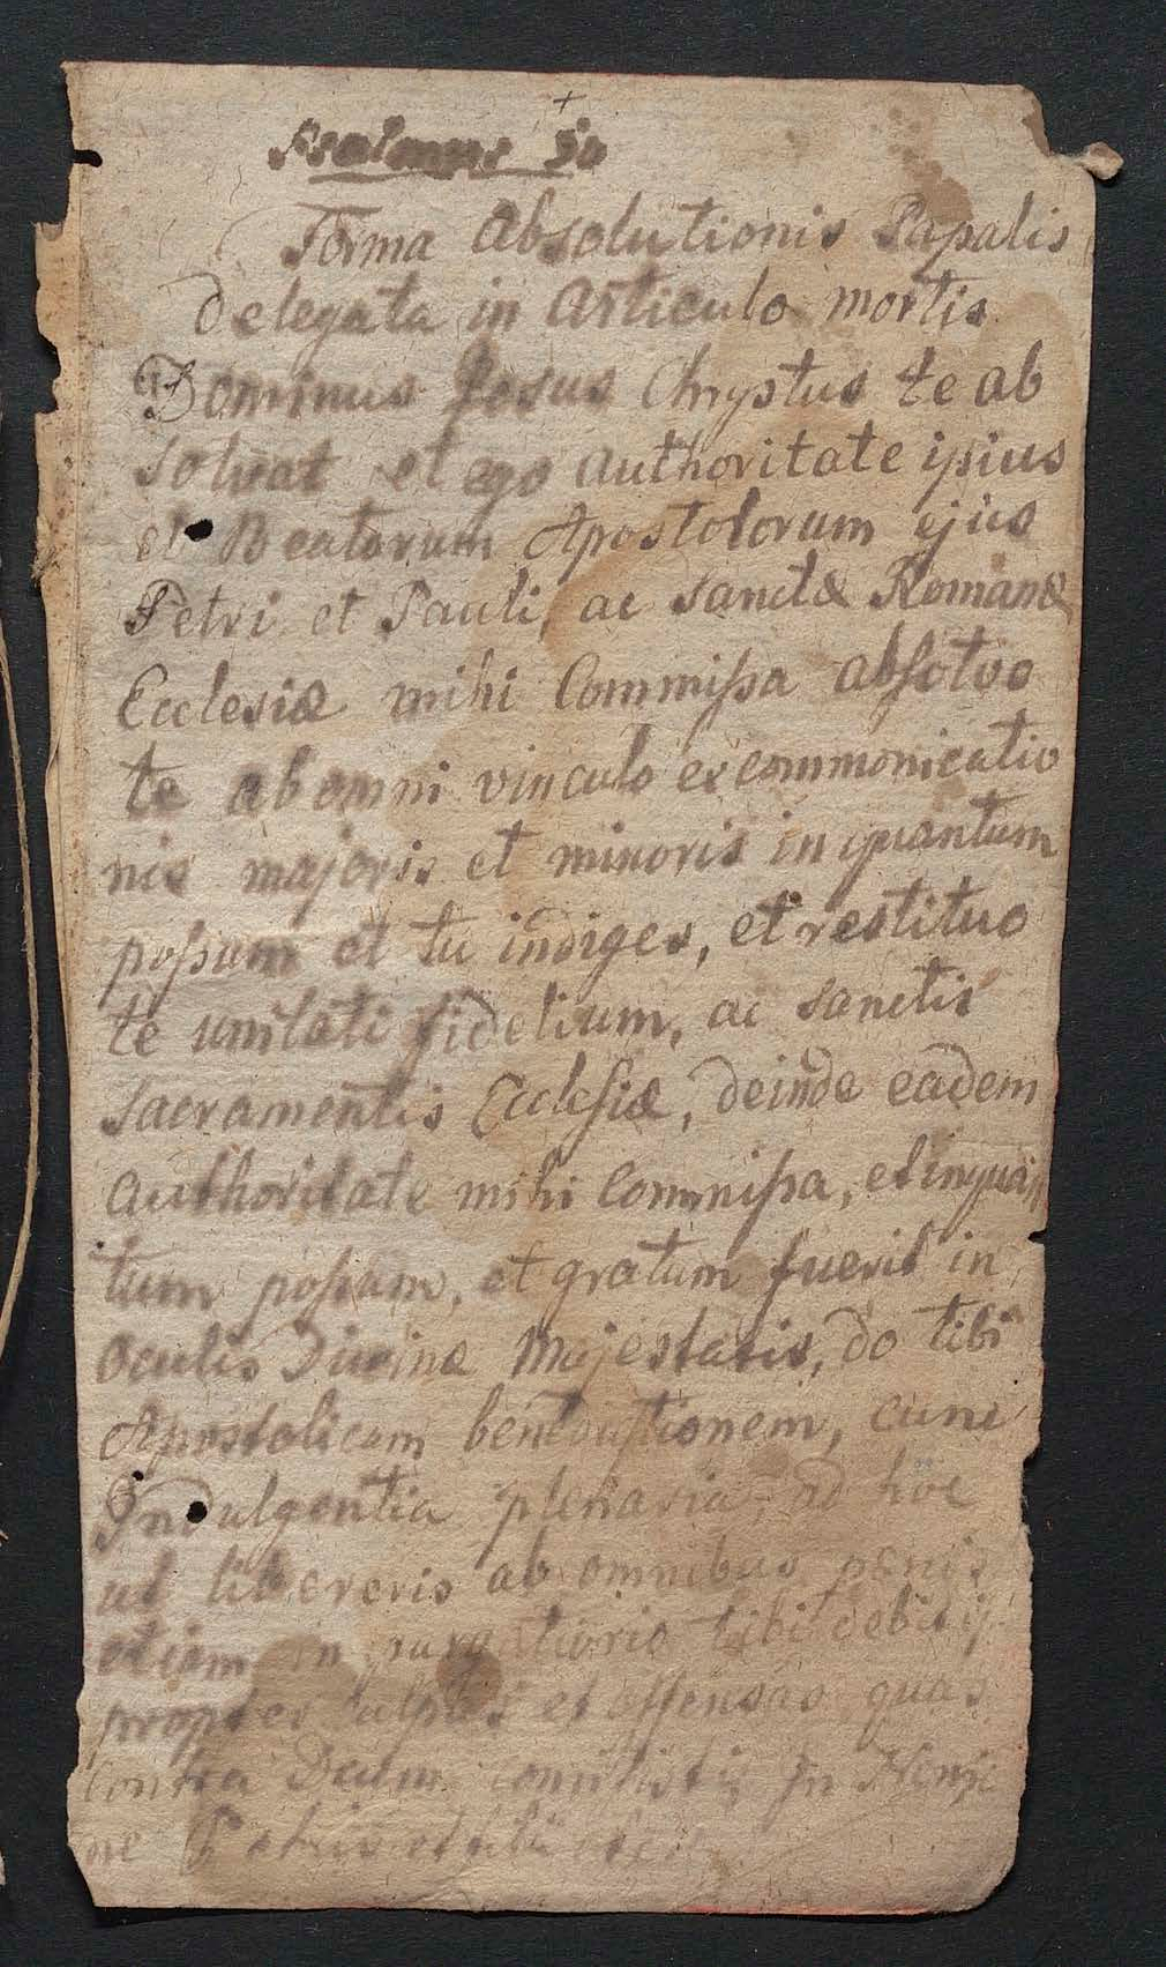 +
Psalmus 50
Forma Absolutionis Papalis
delegata in Articulo mortis
Dominus Jesus Chrystus te ab
solvat et ego authoritate ipsius
et Beatorum Apostolorum ejus
Petri et Pauli, ac sanctæ Romanæ
Ecclesiæ mihi Commissa absolvo
te ab omni vinculo excommonicatio
nis majoris et minoris in quantum
possum et tu indiges, et restituo
te unitati fidelium, ac sanctis
sacramentis Ecclesiæ, deinde eadem
authoritate mihi Commissa, et in quan
tum possum, et gratum fuerit in
oculis Divinæ Majestatis, do tibi
Apostolicam benedictionem, cum
Indulgentia plenaria, ad hoc
ut libereris ab omnibus penis
etiam in purgatiorio tibi debitis
propter culpas et offensas quas
contra Deum commisisti, In Nomi
ne Patris et filii